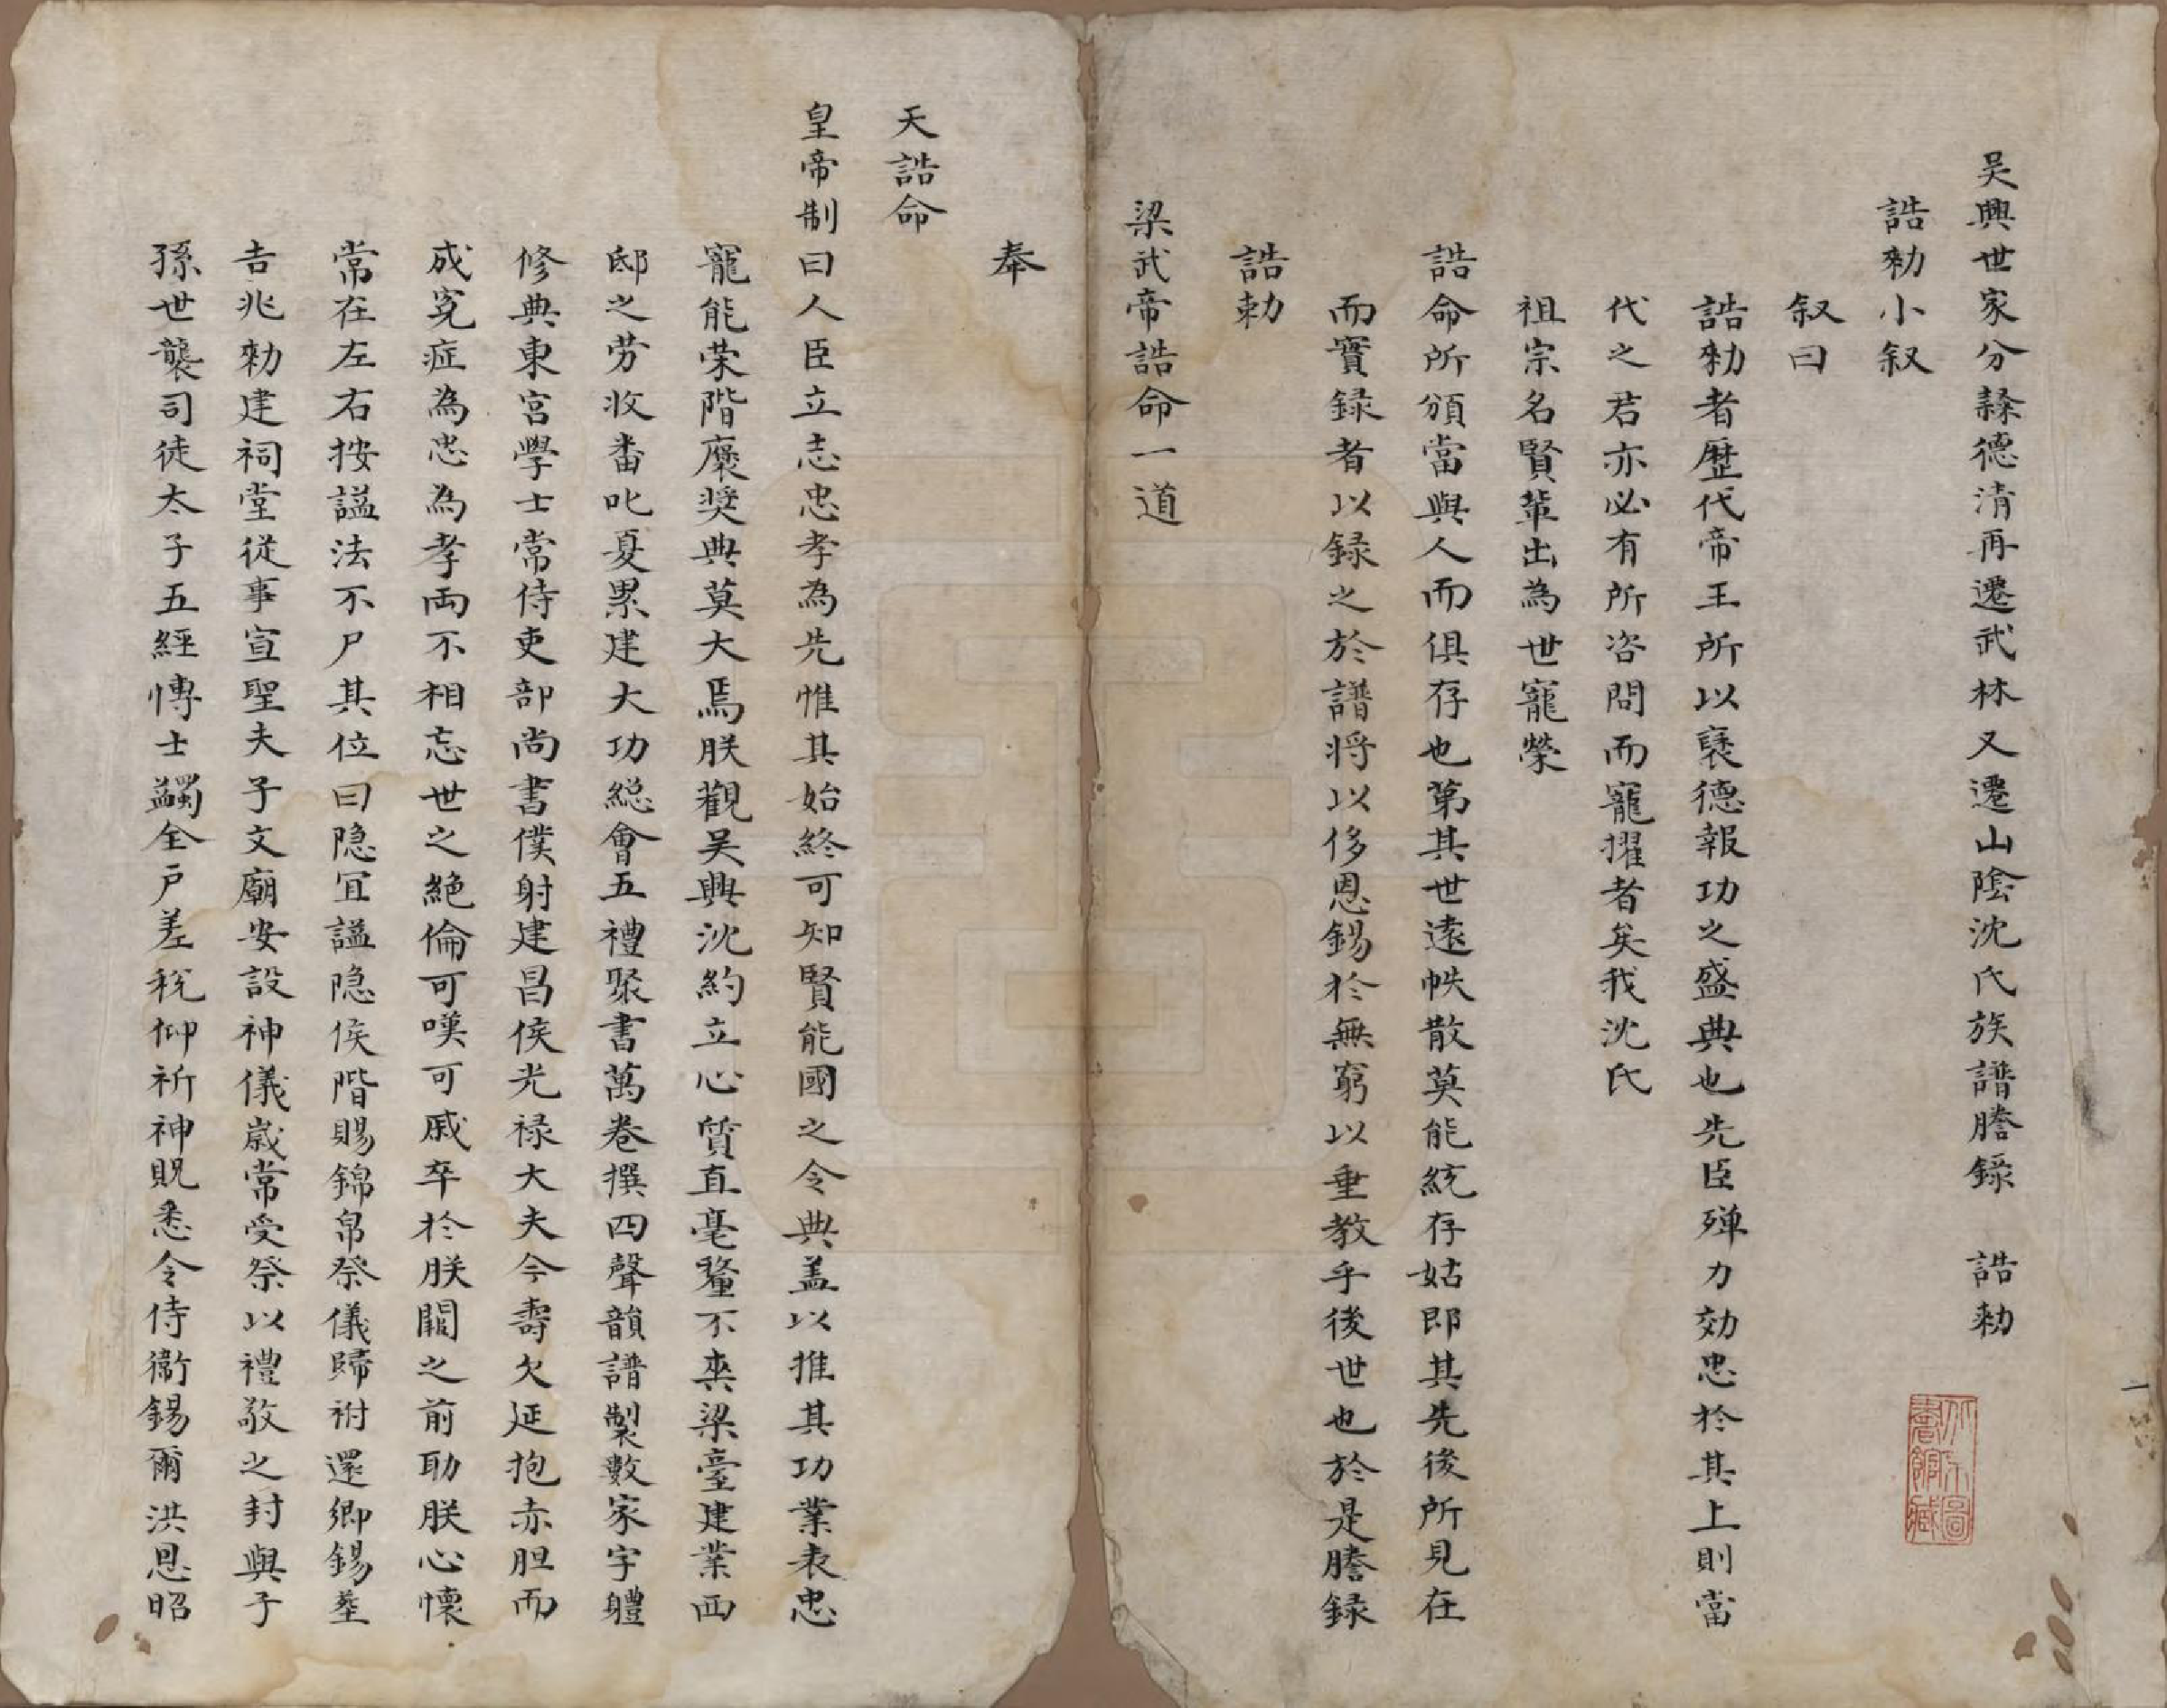 吴興世家分隷德清再遷武林又遷山陰沈氏族譜謄錄 誥勑
誥勑小叙
叙曰
誥勑者歷代帝王所以褒德報功之盛典也先臣殫力効忠於其上則當
代之君亦必有所咨問而寵擢者矣我沈氏
祖宗名賢輩出為世寵榮
誥命所頒當與人而俱存也第其世遠帙散莫能統存姑即其先後所見在
而實録者以録之於譜将以侈恩錫於無窮以垂教乎後世也於是謄録
誥勅
梁武帝誥命一道
奉
天誥命
皇帝制曰人臣立志忠孝為先惟其始終可知賢能國之令典盖以推其功業表忠
寵能荣階褒奨典莫大焉朕觀吴興沈約立心質直毫釐不爽梁臺建業西
邸之劳收畨叱夏累建大功総會五禮聚書萬卷撰四聲韻譜製數家宇軆
修典東宫學士常侍吏部尚書僕射建昌侯光禄大夫今壽欠延抱赤胆而
成寃症為忠為孝両不相忘世之絶倫可嘆可戚卒於朕闕之前助朕心懐
常在左右按謚法不尸其位曰隐冝謚隐侯階賜錦帛祭儀歸祔還鄉錫塟
吉兆勑建祠堂従事宣聖夫子文廟安設神儀歳常受祭以禮敬之封與子
孫世襲司徒太子五經博士蠲全戸差税仰祈神貺悉令侍衞錫爾洪恩昭
一